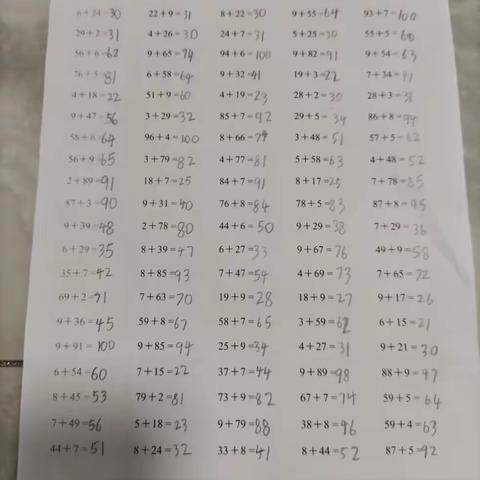 6+24=30 22+9=31 8+22=30 9+55=64 93+7=100
29+2=31 4+26=30 24+7=31 5+25=30 55+5=60
56+6=62 9+65=74 94+6=100 9+82=91 9+54=63
76+5=81 6+58=64 9+32=41 19+3=22 7+34=41
4+18=22 51+9=60 4+19=23 28+2=30 28+3=31
9+47=56 3+29=32 85+7=92 29+5=34 86+8=94
58+6=64 96+4=100 8+66=74 3+48=51 57+5=62
56+9=65 3+79=82 4+77=81 5+58=63 4+48=52
2+89=91 18+7=25 84+7=91 8+17=25 7+78=85
87+3=90 9+31=40 76+8=84 78+5=83 87+8=95
9+39=48 2+78=80 44+6=50 9+29=38 7+29=36
6+29=35 8+39=47 6+27=33 9+67=76 49+9=58
35+7=42 8+85=93 7+47=54 4+69=73 7+65=72
69+2=71 7+63=70 19+9=28 18+9=27 9+17=26
9+36=45 59+8=67 58+7=65 3+59=62 6+15=21
9+91=100 9+85=94 25+9=34 4+27=31 9+21=30
6+54=60 7+15=22 37+7=44 9+89=98 88+9=97
8+45=53 79+2=81 73+9=82 67+7=74 59+5=64
7+49=56 5+18=23 9+79=88 38+8=46 59+4=63
44+7=51 8+24=32 33+8=41 8+44=52 87+5=92